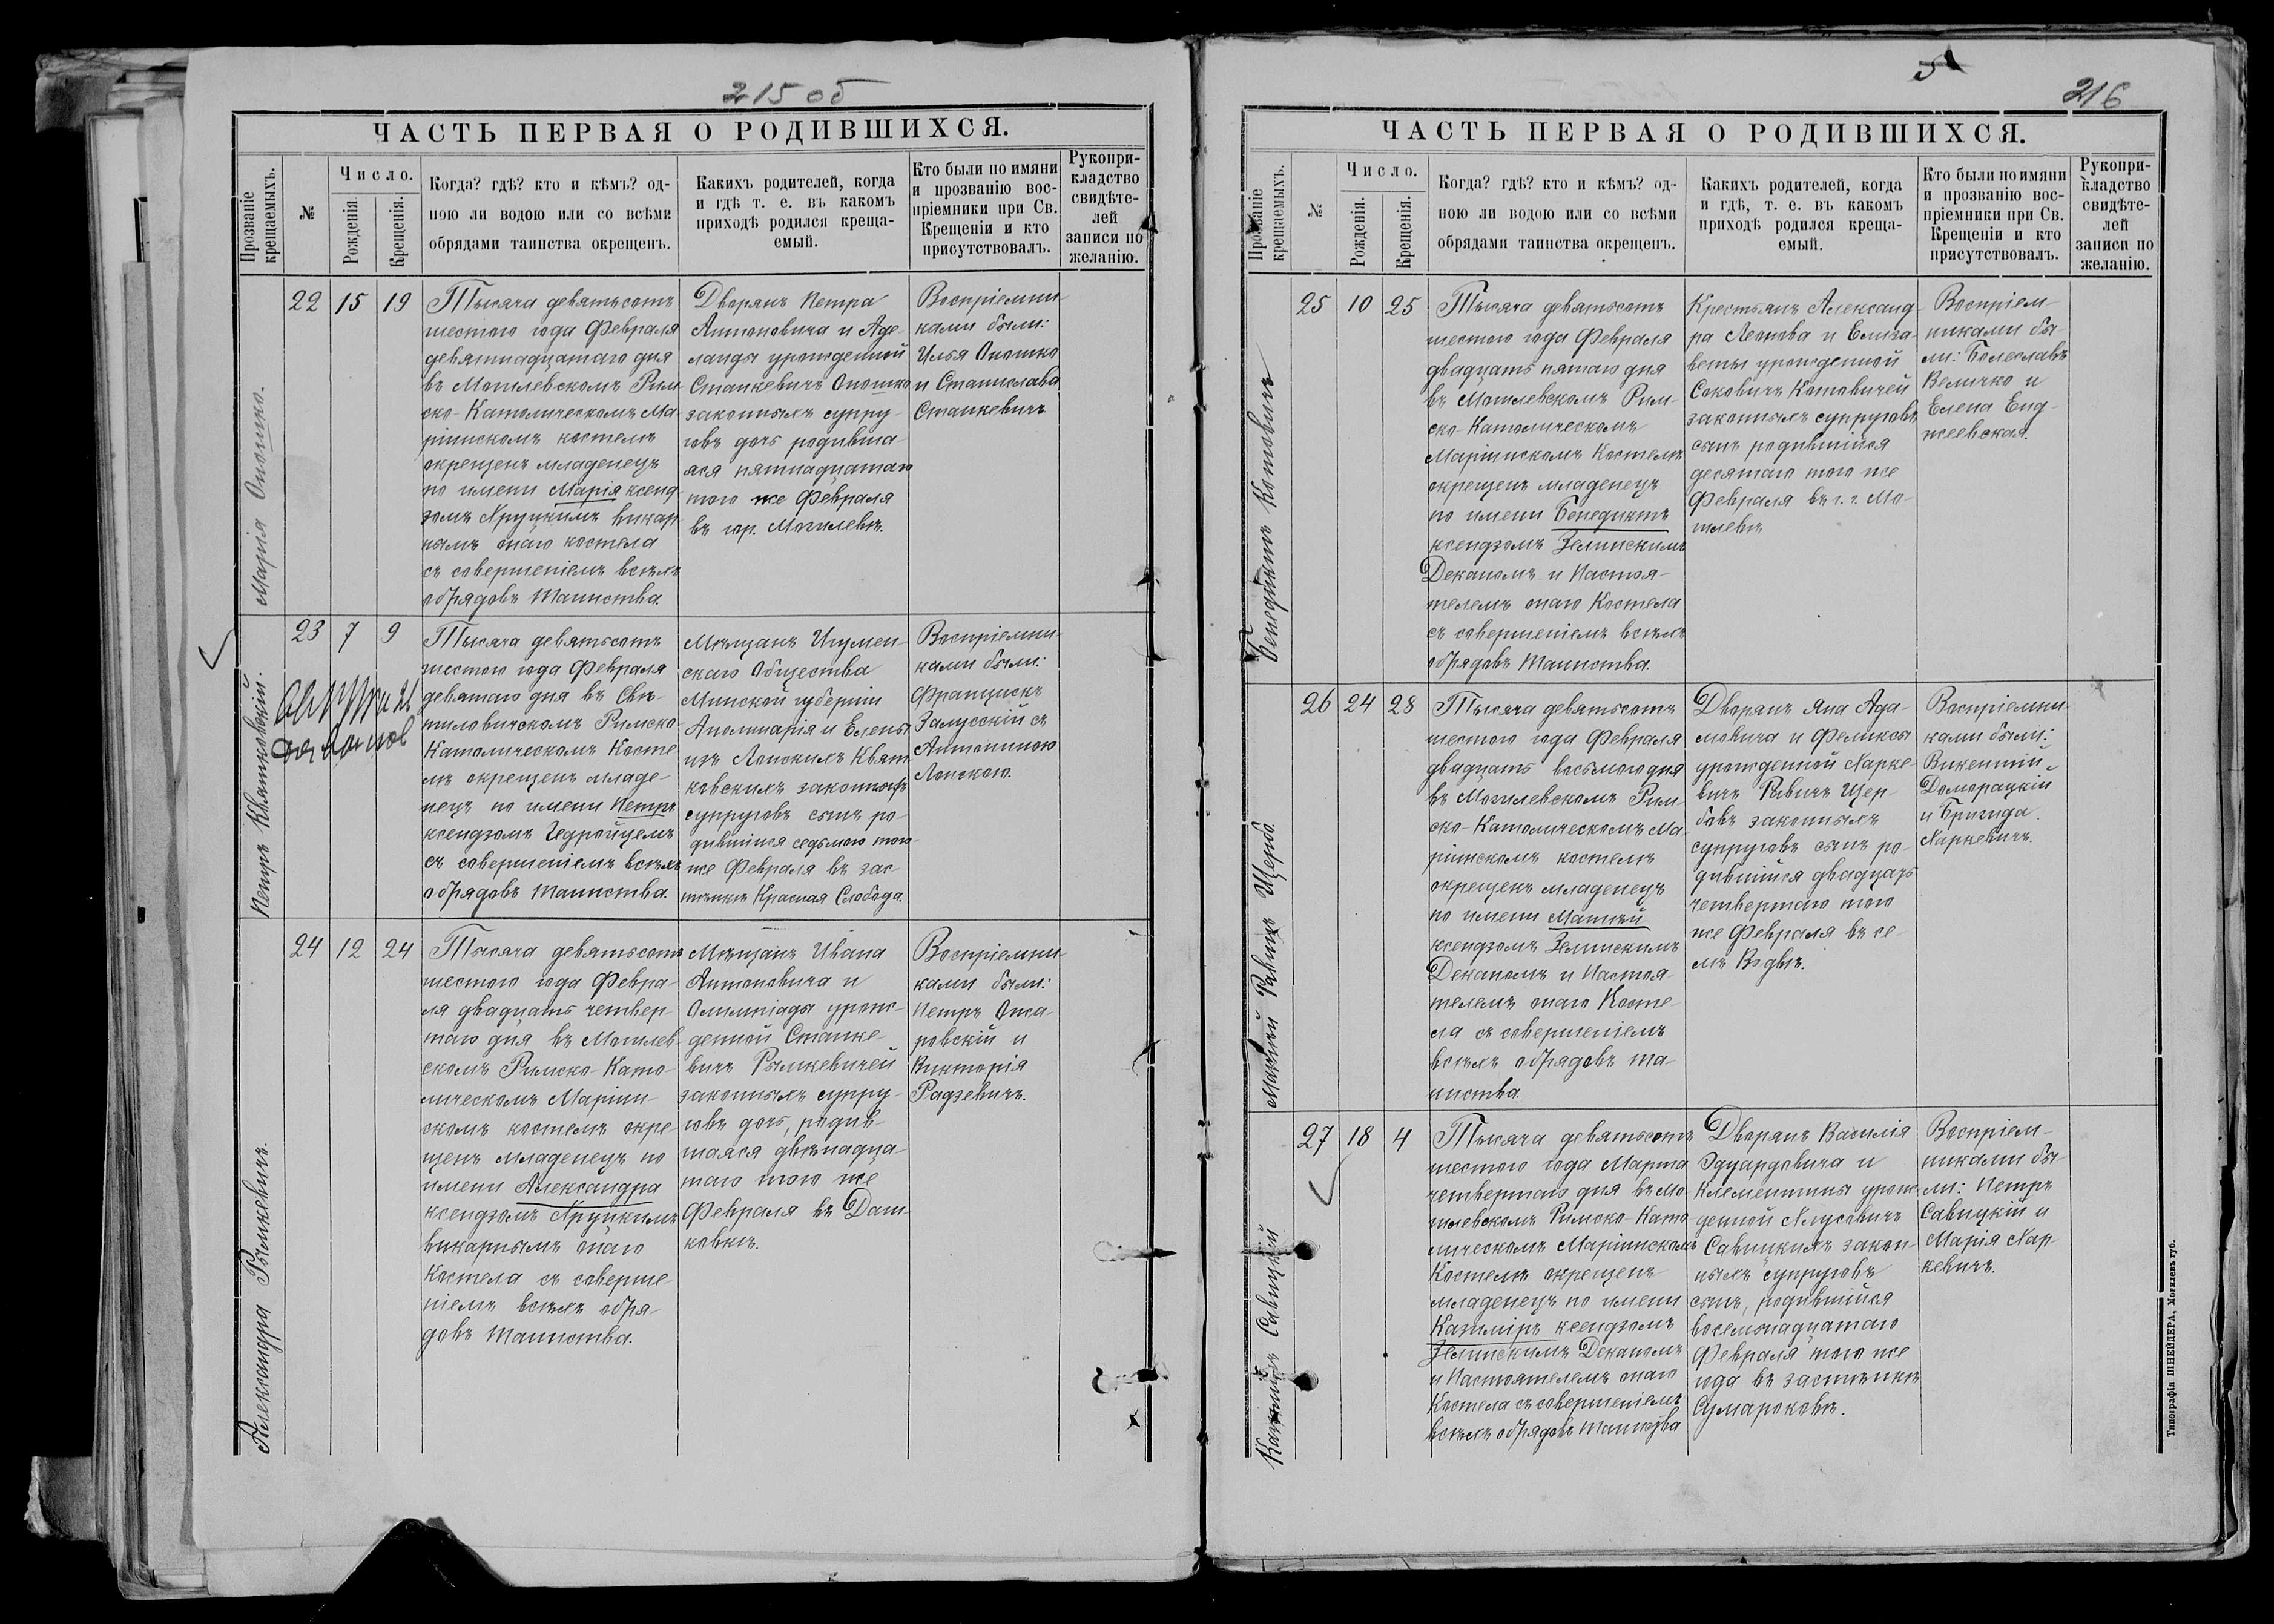 215 об
ЧАСТЬ ПЕРВАЯ О РОДИВШИХСЯ.
Прозваніе крещаемыхъ.
№
Число.
Рожденія.
Крещенія.
Когда? гдѣ? кто и кѣмъ? од-
ною ли водою или со всѣми
обрядами таинства окрещенъ.
Какихъ родителей, когда
и гдѣ т. е. въ какомъ
приходѣ родился креща-
емый.
Кто были по имяни
и прозванію вос-
пріемники при Св.
Крещеніи и кто
присутствовалъ.
Рукопри-
кладство
свидѣте-
лей
записи по
желанію.
Марія Опошко.
22 15 19
Тысяча девятьсотъ
шестого года Февраля
девятнадцатаго дня
въ Могилевскомъ Рим
ско-Католическомъ Ма
ріинскомъ костелѣ
окрещенъ младенецъ
по имени Марія ксенд
зомъ Хруцкимъ викар
нымъ онаго костела
съ совершеніемъ всѣхъ
обрядовъ Таинства.
Дворянъ Петра
Антоновича и Аде
лаиды урожденной
Станкевичъ Опошко
законныхъ супру-
говъ дочь родивша-
яся пятнадцатаго
того же Февраля
въ гор. Могилевѣ.
Воспріемни-
ками были:
Илья Опошко
и Станислава
Станкевичъ
Петръ Квятковскій.
23 7 9
Тысяча девятьсотъ
шестого года Февраля
девятаго дня въ Свѣ-
тиловичскомъ Римско-
Католическомъ Косте-
лѣ окрещенъ младе-
нецъ по имени Петръ
ксендзомъ Гедройцемъ
съ совершеніемъ всѣхъ
обрядовъ Таинства.
Мѣщанъ Игумен-
скаго Общества
Минской губерніи
Аполинарія и Елены
изъ Лонскихъ Квят
ковскихъ законныхъ
супруговъ сынъ ро-
дившійся седьмого того-
же Февраля въ зас-
тѣнкѣ Красная Слобода.
Воспріемни-
ками были:
Францискъ
Залусскій съ
Антониною
Лонскою.
Александра Рымкевичъ.
24 12 24
Тысяча девятьсотъ
шестого года Февра-
ля двадцать четвер-
таго дня въ Могилев-
скомъ Римско-Като-
лическомъ Маріин-
скомъ костелѣ окре-
щенъ младенецъ по
имени Александра
ксендзомъ Хруцкимъ
викарнымъ онаго
Костела съ соверше-
ніемъ всѣхъ обря-
довъ Таинства.
Мѣщанъ Ивана
Антоновича и
Олимпіады урож-
денной Станке
вичъ Рымкевичей
законныхъ супру-
говъ дочь, родив-
шаяся двѣнадца-
таго того же
Февраля въ Даш-
ковкѣ.
Воспріемни-
ками были:
Петръ Оса-
ровскій и
Викторія
Радзевичъ.
5
216
ЧАСТЬ ПЕРВАЯ О РОДИВШИХСЯ.
Прозваніе крещаемыхъ.
№
Число.
Рожденія.
Крещенія.
Когда? гдѣ? кто и кѣмъ? од-
ною ли водою или со всѣми
обрядами таинства окрещенъ.
Какихъ родителей, когда
и гдѣ, т. е. въ какомъ
приходѣ родился креща-
емый.
Кто были по имяни
и прозванію вос-
пріемники при Св.
Крещеніи и кто
присутствовалъ.
Рукопри-
кладство
свидѣте-
лей
записи по
желанію.
Бенедиктъ Котовичъ
25 10 25
Тысяча девятьсотъ
шестого года Февраля
двадцать пятаго дня
въ Могилевскомъ Рим-
ско-Католическомъ
Маріинскомъ Костелѣ
окрещенъ младенецъ
по имени Бенедиктъ
ксендзомъ Зелинскимъ
Деканомъ и Настоя-
телемъ онаго Костела
съ совершеніемъ всѣхъ
обрядовъ Таинства.
Крестьянъ Александ-
ра Леонова и Елиза-
веты урожденной
Соковичъ Котовичей
законныхъ супруговъ
сынъ родившійся
десятаго того же
Февраля въ г. г. Мо-
гилевѣ
Воспріем-
никами бы-
ли: Болеславъ
Величко и
Елена Енд-
жеевская.
Матѣй Равичъ Щерба
26 24 28
Тысяча девятьсотъ
шестого года Февраля
двадцать восьмого дня
въ Могилевскомъ Рим-
ско-Католическомъ Ма
ріинскомъ костелѣ
окрещенъ младенецъ
по имени Матѣй
ксендзомъ Зелинскимъ
Деканомъ и Настоя-
телемъ онаго Косте-
ла съ совершеніемъ
всѣхъ обрядовъ та-
инства.
Дворянъ Яна Ада-
мовича и Феликсы
урожденной Харке-
вичъ Равичъ Щер-
бовъ законныхъ
супруговъ сынъ ро-
дившійся двадцать
четвертаго того
же Февраля въ се-
лѣ Водвѣ.
Воспріемни-
ками были:
Викентій
Доморацкій
и Бригида
Харкевичъ.
Казиміръ Савицкій
27 18 4
Тысяча девятьсотъ
шестого года Марта
четвертаго дня въ Мо-
гилевскомъ Римско-Като
лическомъ Маріинскомъ
Костелѣ окрещенъ
младенецъ по имени
Казиміръ ксендзомъ
Зелинскимъ Деканомъ
и Настоятелемъ онаго
Костела съ совершеніемъ
всѣхъ обрядовъ Таинства
Дворянъ Василія
Эдуардовича и
Клементины урож
денной
Савицкихъ закон-
ныхъ супруговъ
сынъ, родившійся
восемнадцатаго
Февраля того же
года въ застѣнкѣ
Сумароковѣ.
Воспріем-
никами бы-
ли: Петръ
Савицкій и
Марія Хар-
кевичъ.
Типографія ШНЕЙДЕРА, Могилевъ губ.